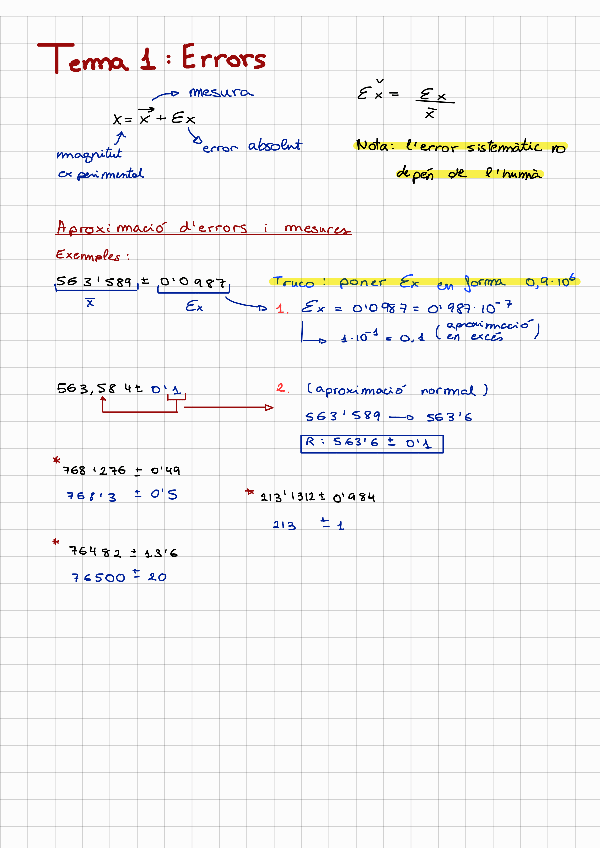 Tema 1: Errors
mesura
x = x̄ + Ɛx
magnitut
experimental
error absolut
Ɛx̌ = Ɛx / x̄
Nota: l'error sistemàtic no
depén de l'humà
Aproximació d'errors i mesures
Exemples:
563'589 ± 0'0987
x̄ Ɛx
Truco: poner Ɛx en forma 0,9·10⁶
1. Ɛx = 0'0987 = 0'987·10⁻⁷
1·10⁻¹ = 0,1 (aproximació
en excés)
563,584 ± 0'1
2. (aproximació normal)
563'589 → 563'6
R: 563'6 ± 0'1
* 768'276 ± 0'49
768'3 ± 0'5
* 213'1312 ± 0'984
213 ± 1
* 76482 ± 13'6
76500 ± 20